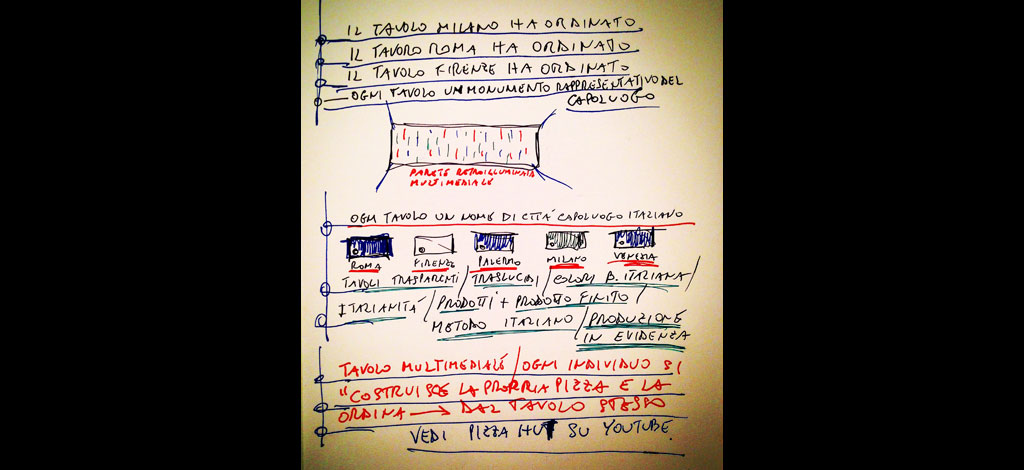 IL TAVOLO MILANO HA ORDINATO
IL TAVORO ROMA HA ORDINATO
IL TAVOLO FIRENZE HA ORDINATO
OGNI TAVOLO UN MONUMENTO RAPPRESENTATIVO DEL
CAPOLUOGO
PARETE RETROILLUMINATA
MULTIMEDIALE
OGNI TAVOLO UN NOME DI CITTÀ CAPOLUOGO ITALIANO
ROMA FIRENZE PALERMO MILANO VENEZIA
TAVOLI TRASPARENTI / TRASLUCIDI / COLORI B. ITALIANA /
ITALIANITÀ / PRODOTTI + PRODOTTO FINITO /
METODO ITALIANO / PRODUZIONE
IN EVIDENZA
TAVOLO MULTIMEDIALE / OGNI INDIVIDUO SI
"COSTRUISCE LA PROPRIA PIZZA E LA
ORDINA → DAL TAVOLO STESSO
VEDI PIZZA HUT SU YOUTUBE.